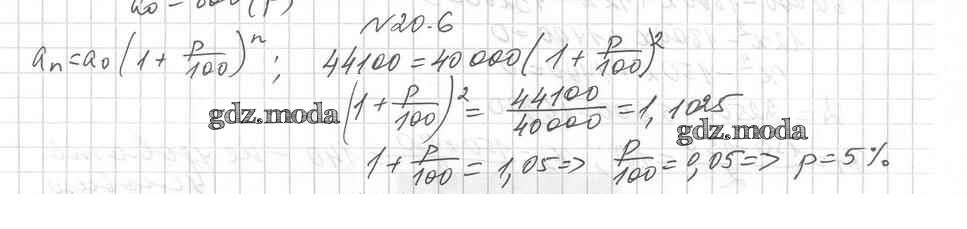 №20.6
aₙ=a₀(1+ p/100)ⁿ; 44100=40000(1+ p/100)²
gdz.moda (1+ p/100)²= 44100/40000 =1,1025
gdz.moda
1+ p/100 = 1,05=> p/100 =0,05=> p=5%